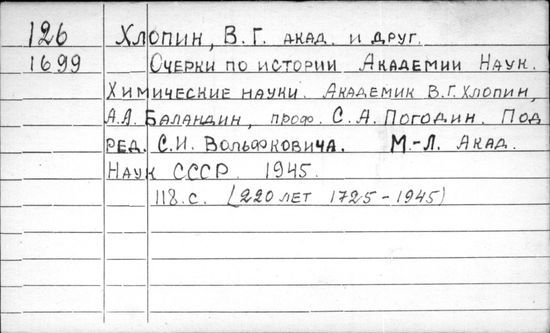 126 Хлопин, В.Г. акад. и друг.
1699 Очерки по истории Академии Наук.
Химические науки. Академик В.Г. Хлопин,
А.А. Баландин, проф. С.А. Погодин. Под
ред. С.И. Вольфковича. М.-Л. Акад.
Наук СССР. 1945.
118.с. (220 лет 1725-1945)